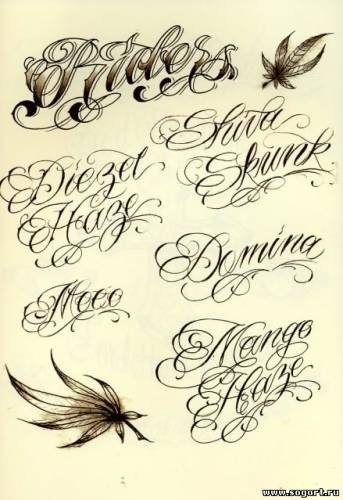 Shiva
Skunk
Diezel
Haze
Domina
Mango
Haze
www.sogort.ru